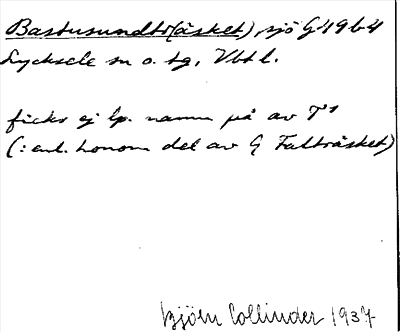 Bastusundtr(äsket), sjö G 49 b 4
Lycksele sn o. tg. Vbtl.
ficks ej lp. namn på av T¹
(: enl. honom del av G Falträsket)
Björn Collinder 1937